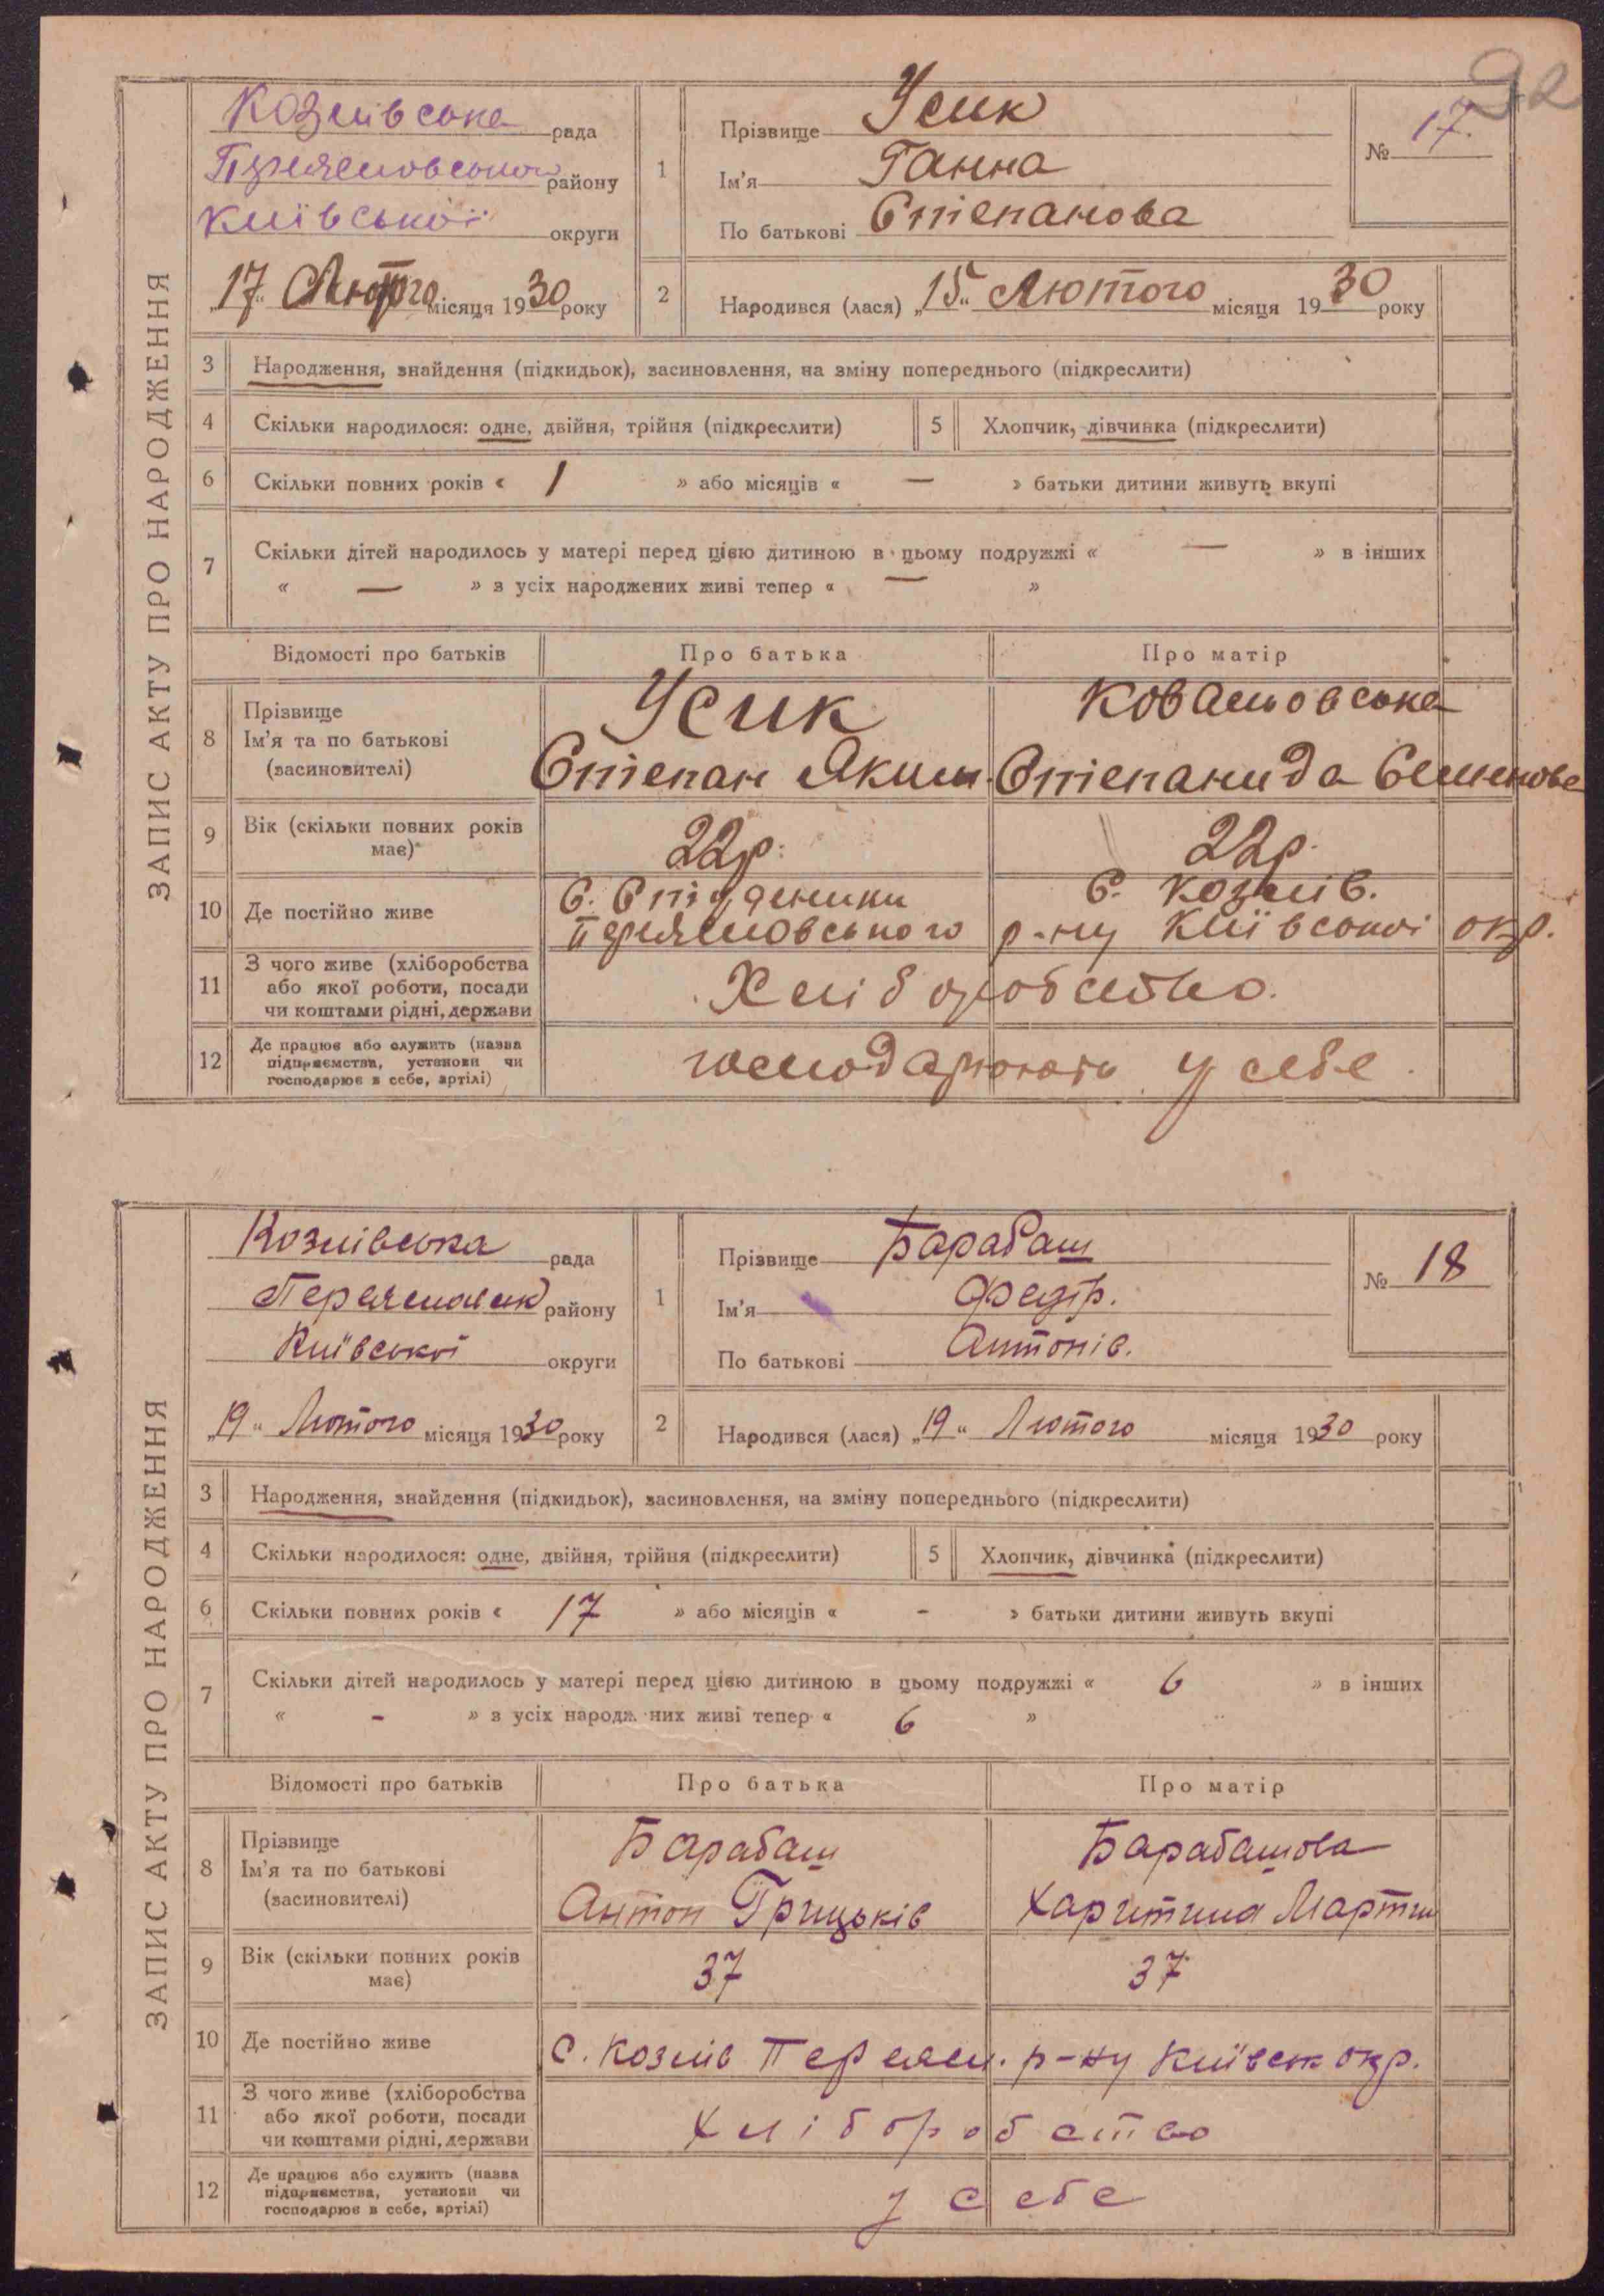 92
ЗАПИС АКТУ ПРО НАРОДЖЕННЯ
Козлівська рада
Переяславської району
Київської округи
„17“ Лютого місяця 1930 року
1 Прізвище Усик
Ім'я Ганна
По батькові Степанова
№ 17.
2 Народився (лася) „15“ Лютого місяця 1930 року
3 Народження, знайдення (підкидьок), засиновлення, на зміну попереднього (підкреслити)
4 Скільки народилося: одне, двійня, трійня (підкреслити) 5 Хлопчик, дівчинка (підкреслити)
6 Скільки повних років « 1 » або місяців « — » батьки дитини живуть вкупі
7 Скільки дітей народилось у матері перед цією дитиною в цьому подружжі « — » в інших
« — » з усіх народжених живі тепер « — »
Відомості про батьків Про батька Про матір
8 Прізвище Усик Ковальовська
Ім'я та по батькові
(засиновителі) Степан Яким. Степанида Семенова
9 Вік (скільки повних років має) 22р. 22р.
10 Де постійно живе С. С. Козлів.
Переяславського р-ну Київської окр.
11 З чого живе (хліборобства
або якої роботи, посади
чи коштами рідні, держави Хліборобство.
12 Де працює або служить (назва
підприємства, установи чи
господарює в себе, артілі) господарюють у себе.
ЗАПИС АКТУ ПРО НАРОДЖЕННЯ
Козлівська рада
Переяславськ району
Київської округи
„19“ Лютого місяця 1930 року
1 Прізвище Барабаш
Ім'я Федір.
По батькові Антонів.
№ 18
2 Народився (лася) „19“ Лютого місяця 1930 року
3 Народження, знайдення (підкидьок), засиновлення, на зміну попереднього (підкреслити)
4 Скільки народилося: одне, двійня, трійня (підкреслити) 5 Хлопчик, дівчинка (підкреслити)
6 Скільки повних років « 17 » або місяців « - » батьки дитини живуть вкупі
7 Скільки дітей народилось у матері перед цією дитиною в цьому подружжі « 6 » в інших
« - » з усіх народж них живі тепер « 6 »
Відомості про батьків Про батька Про матір
8 Прізвище Барабаш Барабашова
Ім'я та по батькові
(засиновителі) Антон Грицьків Харитина Мартин
9 Вік (скільки повних років має) 37 37
10 Де постійно живе С. Козлів Переясл. р-ну Київськ окр.
11 З чого живе (хліборобства
або якої роботи, посади
чи коштами рідні, держави хліборобство
12 Де працює або служить (назва
підприємства, установи чи
господарює в себе, артілі) у себе